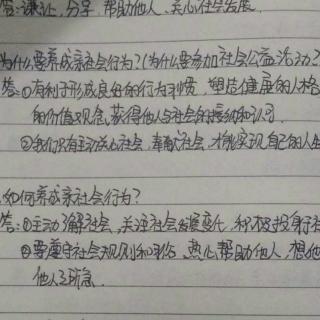 答:谦让,分享,帮助他人,关心社会发展.
为什么要养成亲社会行为?(为什么要参加社会公益活动?
答:①有利于形成良好的行为习惯,塑造健康的人格
的价值观念,获得他人与社会的接纳和认可.
②我们只有主动关心社会,奉献社会,才能实现自己的人生
如何养成亲社会行为?
答:①主动了解社会,关注社会发展变化,积极投身行社
②要遵守社会规则和习俗,热心帮助他人,想他
他人之所急.